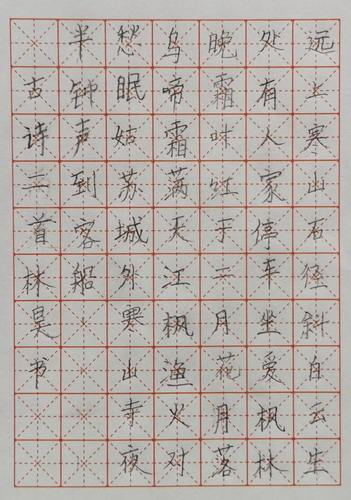 远上寒山石径斜白云生
处有人家停车坐爱枫林
晚霜叶红于二月花月落
乌啼霜满天江枫渔火对
愁眠姑苏城外寒山寺夜
半钟声到客船
古诗二首林昊书